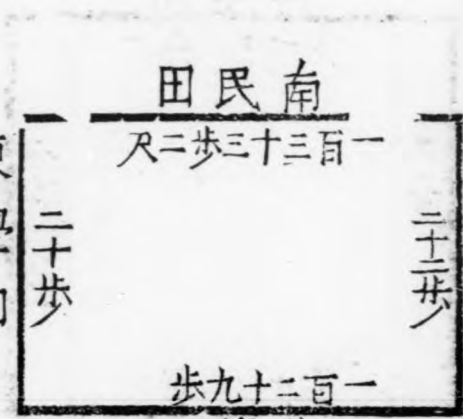 南民田
一百三十三步二尺
二十二步
二十步
一百二十九步